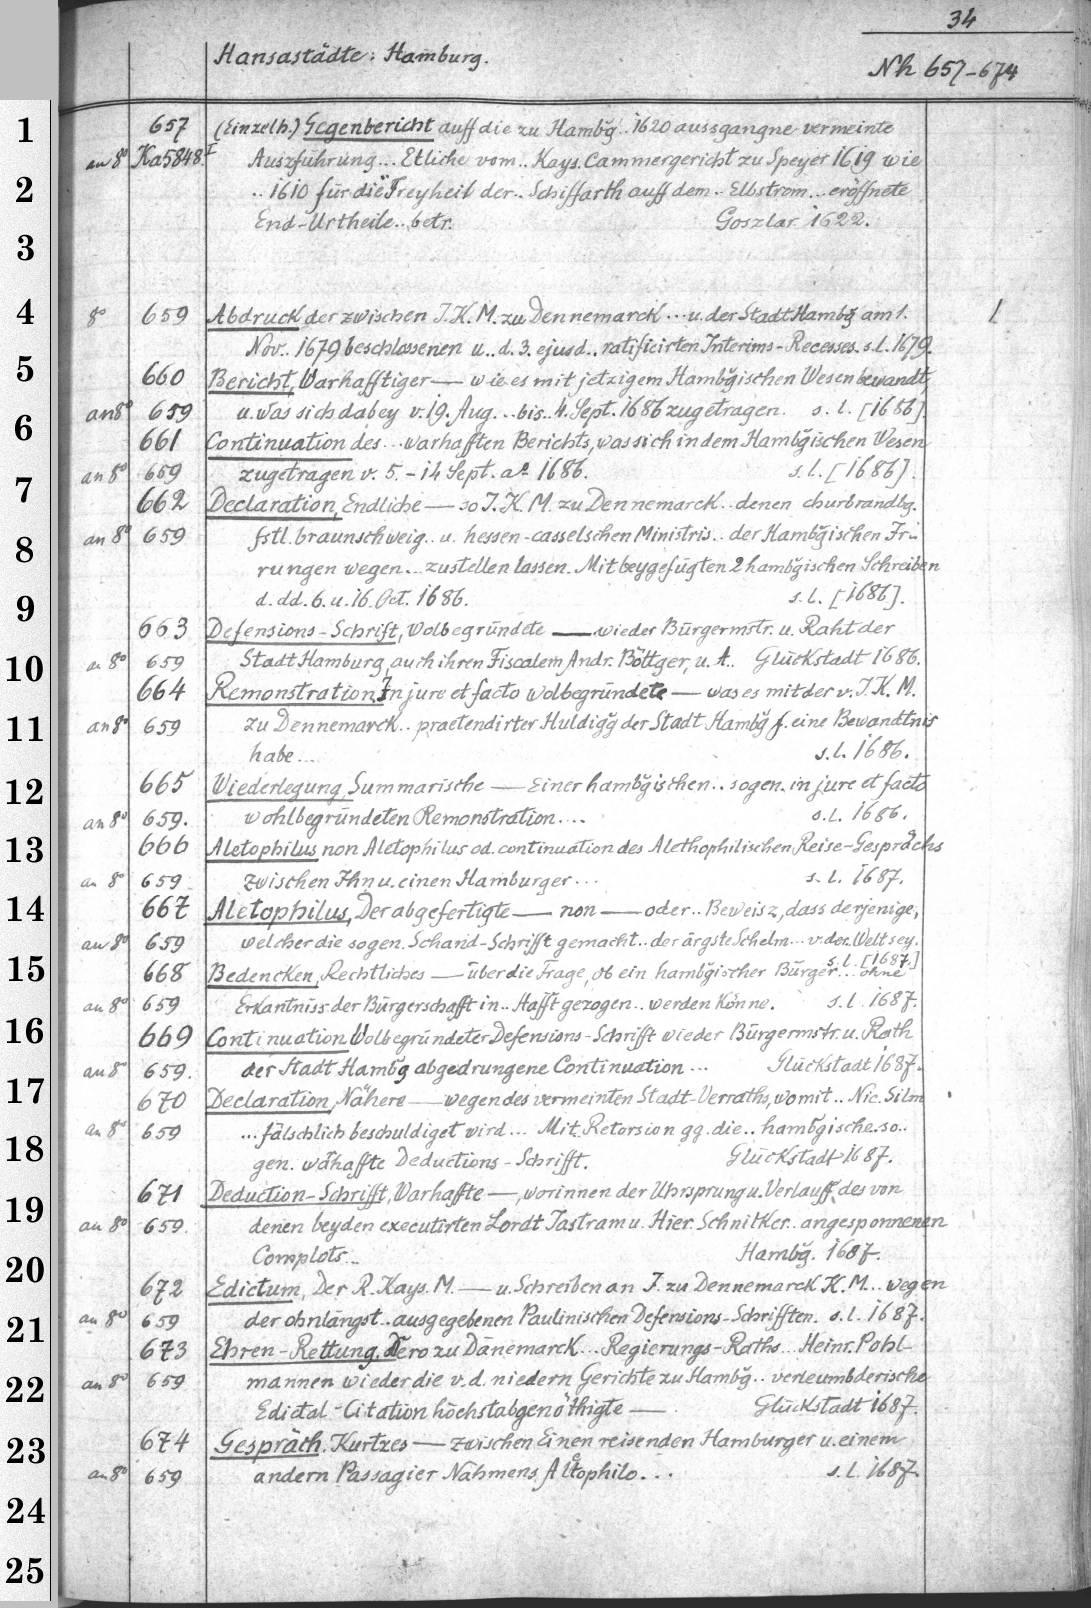 34
Hansastädte: Hamburg.
Nh 657-674
1
657 (Einzelh.) Gegenbericht auff die zu Hambg̃.. 1620 aussgangne vermeinte
an 8° Ka5848.I Auszführung... Etliche vom.. Kays. Cammergericht zu Speyer 1619 wie
2
.. 1610 für die Freyheit der.. Schiffarth auff dem.. Elbstrom... eröffnete
End-Urtheile.. betr. Goszlar 1622.
3
4
8° 659 Abdruck der zwischen I.K.M. zu Dennemarck... u. der Stadt Hambg̃ am 1.
Nov.. 1679 beschlossenen u.. d. 3. ejusd.. ratificirten Interims-Recesses. s.l. 1679.
5
660 Bericht, Warhafftiger — wie es mit jetzigem Hambg̃ischen Wesen bewandt,
an 8° 659 u. was sich dabey v. 19. Aug... bis.. 4. Sept. 1686 zugetragen. s. l. [1686].
6
661 Continuation des... warhafften Berichts, was sich in dem Hambg̃ischen Wesen
an 8° 659 zugetragen v. 5.-14 Sept. aº 1686. s.l. [1686].
7
662 Declaration, Endliche — so I.K.M. zu Dennemarck.. denen churbrandbg.
an 8° 659 fstl. braunschweig.. u. hessen-casselschen Ministris.. der Hambg̃ischen Ir-
8
rungen wegen... zustellen lassen. Mit beygefügten 2 hambg̃ischen Schreiben
d. dd. 6. u. 16. Oct. 1686. s.l. [1686].
9
663 Defensions-Schrift, Wolbegründete — wieder Bürgermstr. u. Raht der
10
an 8° 659 Stadt Hamburg, auch ihren Fiscalem Andr. Böttger, u. A.. Glückstadt 1686.
664 Remonstration, In jure et facto wolbegründete — was es mit der v. I.K.M.
11
an 8° 659 zu Dennemarck.. praetendirter Huldigg̃ der Stadt Hambg̃ f. eine Bewandtnis
habe... s.l. 1686.
12
665 Wiederlegung, Summarische — Einer hambg̃ischen.. sogen. in jure et facto
an 8° 659. wohlbegründeten Remonstration.... s.l. 1686.
13
666 Aletophilus non Aletophilus od. continuation des Alethophilischen Reise-Gesprächs
an 8° 659 zwischen Ihn u. einen Hamburger... s.l. 1687.
14
667 Aletophilus, Der abgefertigte — non — oder.. Beweisz, dass derjenige,
an 8° 659 welcher die sogen. Schand-Schrifft gemacht.. der ärgste Schelm... v. der Welt sey.
s.l. [1687.]
15
668 Bedencken, Rechtliches — über die Frage, ob ein hambg̃ischer Bürger... ohne
an 8° 659 Erkantniss der Bürgerschafft in.. Hafft gezogen.. werden könne. s.l. 1687.
16
669 Continuation Wolbegründeter Defensions-Schrifft wieder Bürgermstr. u. Rath
an 8° 659. der Stadt Hambg̃ abgedrungene Continuation... Glückstadt 1687.
17
670 Declaration, Nähere — wegen des vermeinten Stadt-Verraths, womit.. Nic. Silm
an 8° 659 ... fälschlich beschuldiget wird... Mit Retorsion gg. die.. hambg̃ische. so..
18
gen. wahaffte Deductions-Schrifft. Glückstadt 1687.
19
671 Deduction-Schrifft, Warhaffte —, worinnen der Uhrsprung u. Verlauff, des von
an 8° 659. denen beyden executirten Lordt Jastram u. Hier. Schnitker.. angesponnenen
Complots... Hambg̃. 1687.
20
672 Edictum, Der R. Kays. M. — u. Schreiben an I. zu Dennemarck K.M... wegen
an 8° 659 der ohnlängst.. ausgegebenen Paulinischen Defensions-Schrifften. s.l. 1687.
21
673 Ehren-Rettung, Dero zu Dänemarck... Regierungs-Raths... Heinr. Pohl-
22
an 8° 659 mannen wieder die v. d. niedern Gerichte zu Hambg̃.. verleumbderische
Edictal-Citation höchstabgenöthigte — Glückstadt 1687.
23
674 Gespräch, Kurtzes — zwischen Einen reisenden Hamburger u. einem
an 8° 659 andern Passagier Nahmens Aletophilo... s.l. 1687.
24
25